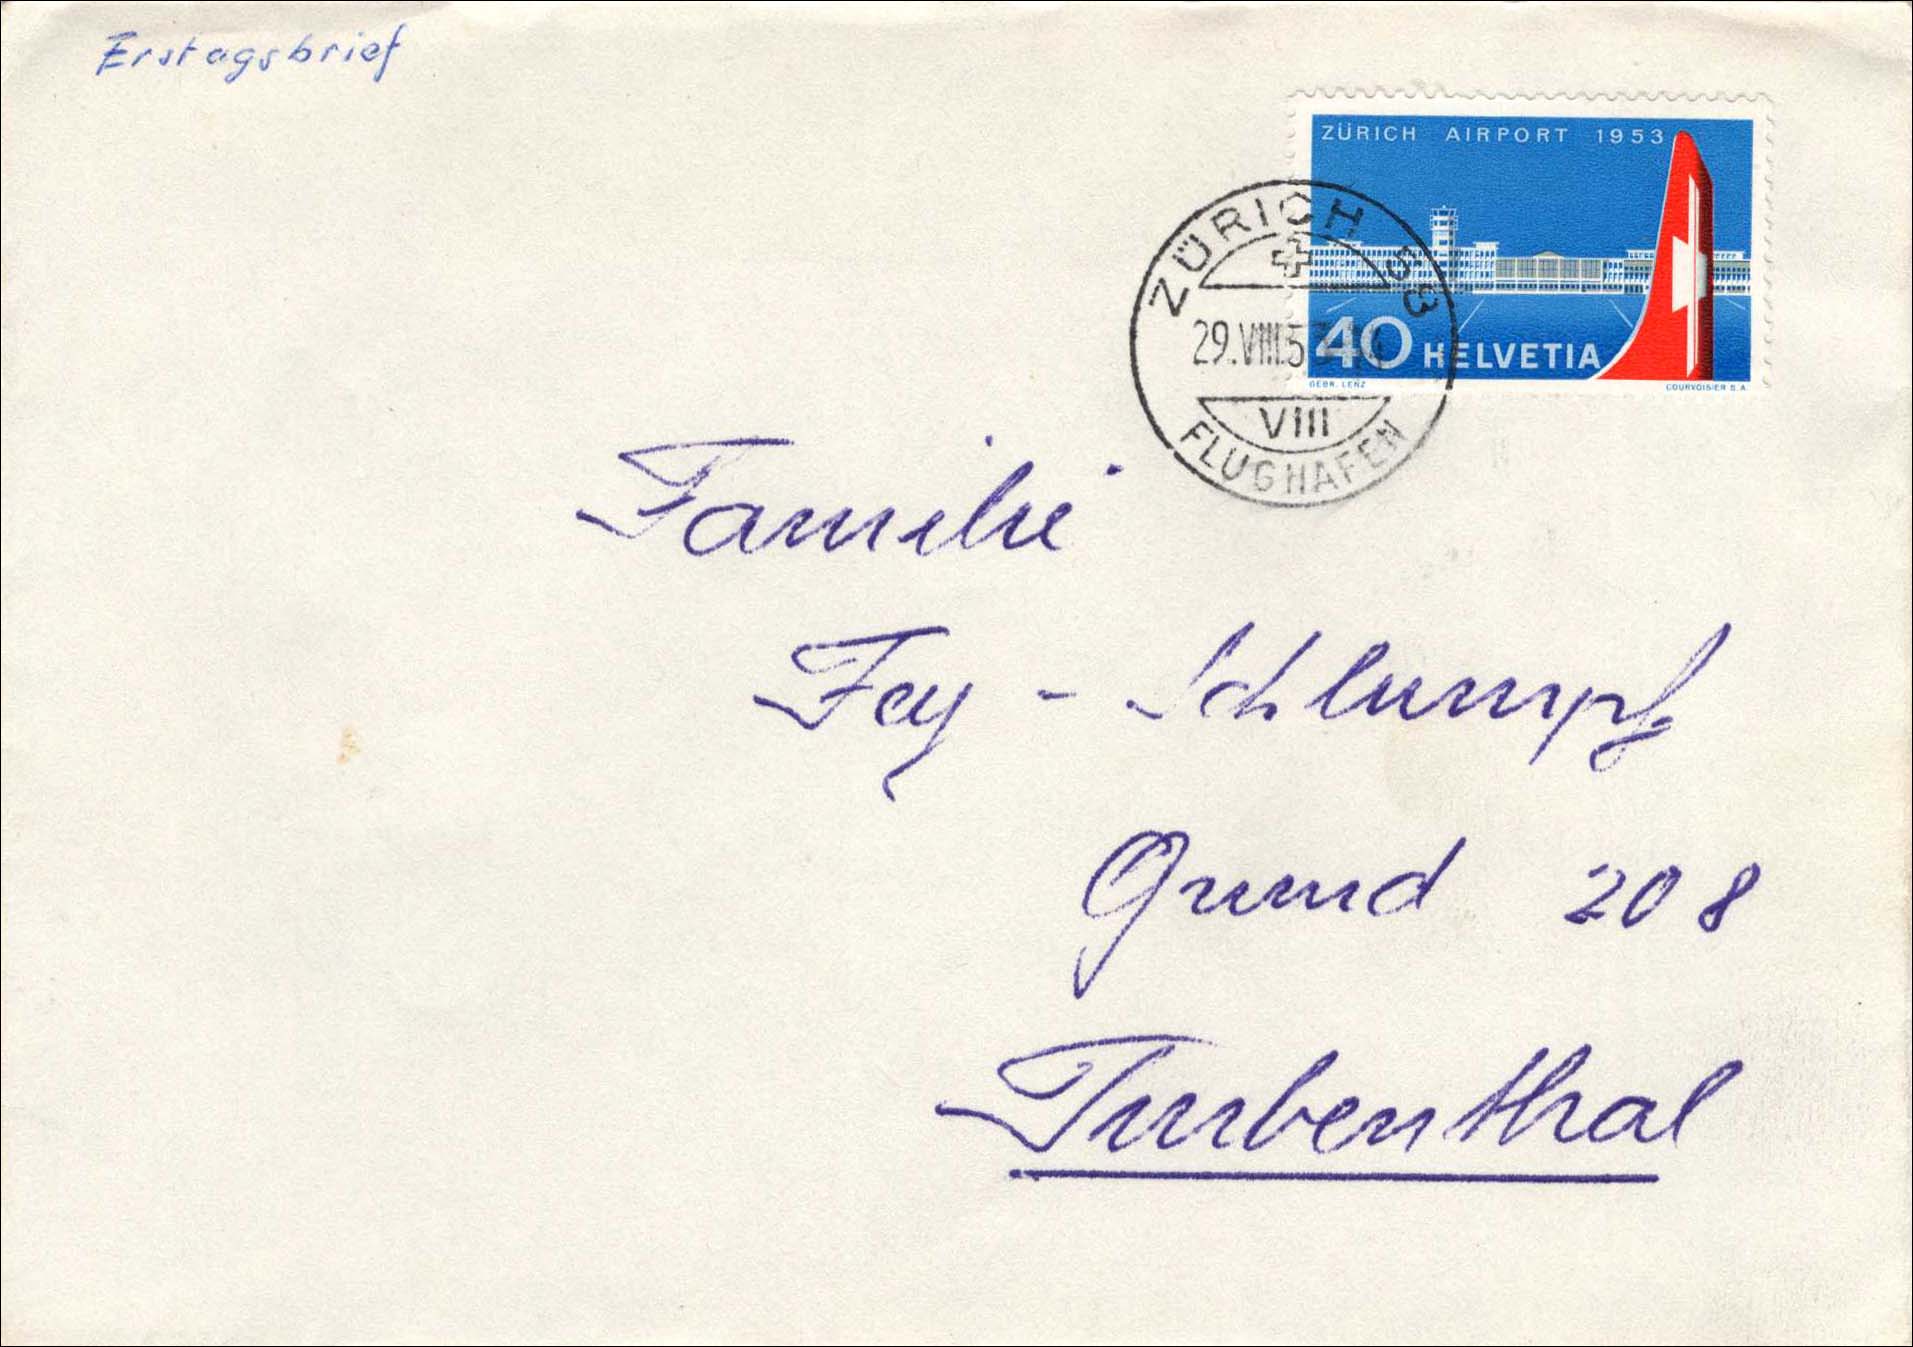 Erstagsbrief
ZÜRICH AIRPORT 1953
40 HELVETIA
GEBR. LENZ
COURVOISIER S.A.
ZÜRICH 58
29.VIII.53
VIII
FLUGHAFEN
Familie
Fey - Schlumpf
Grund 208
Turbenthal